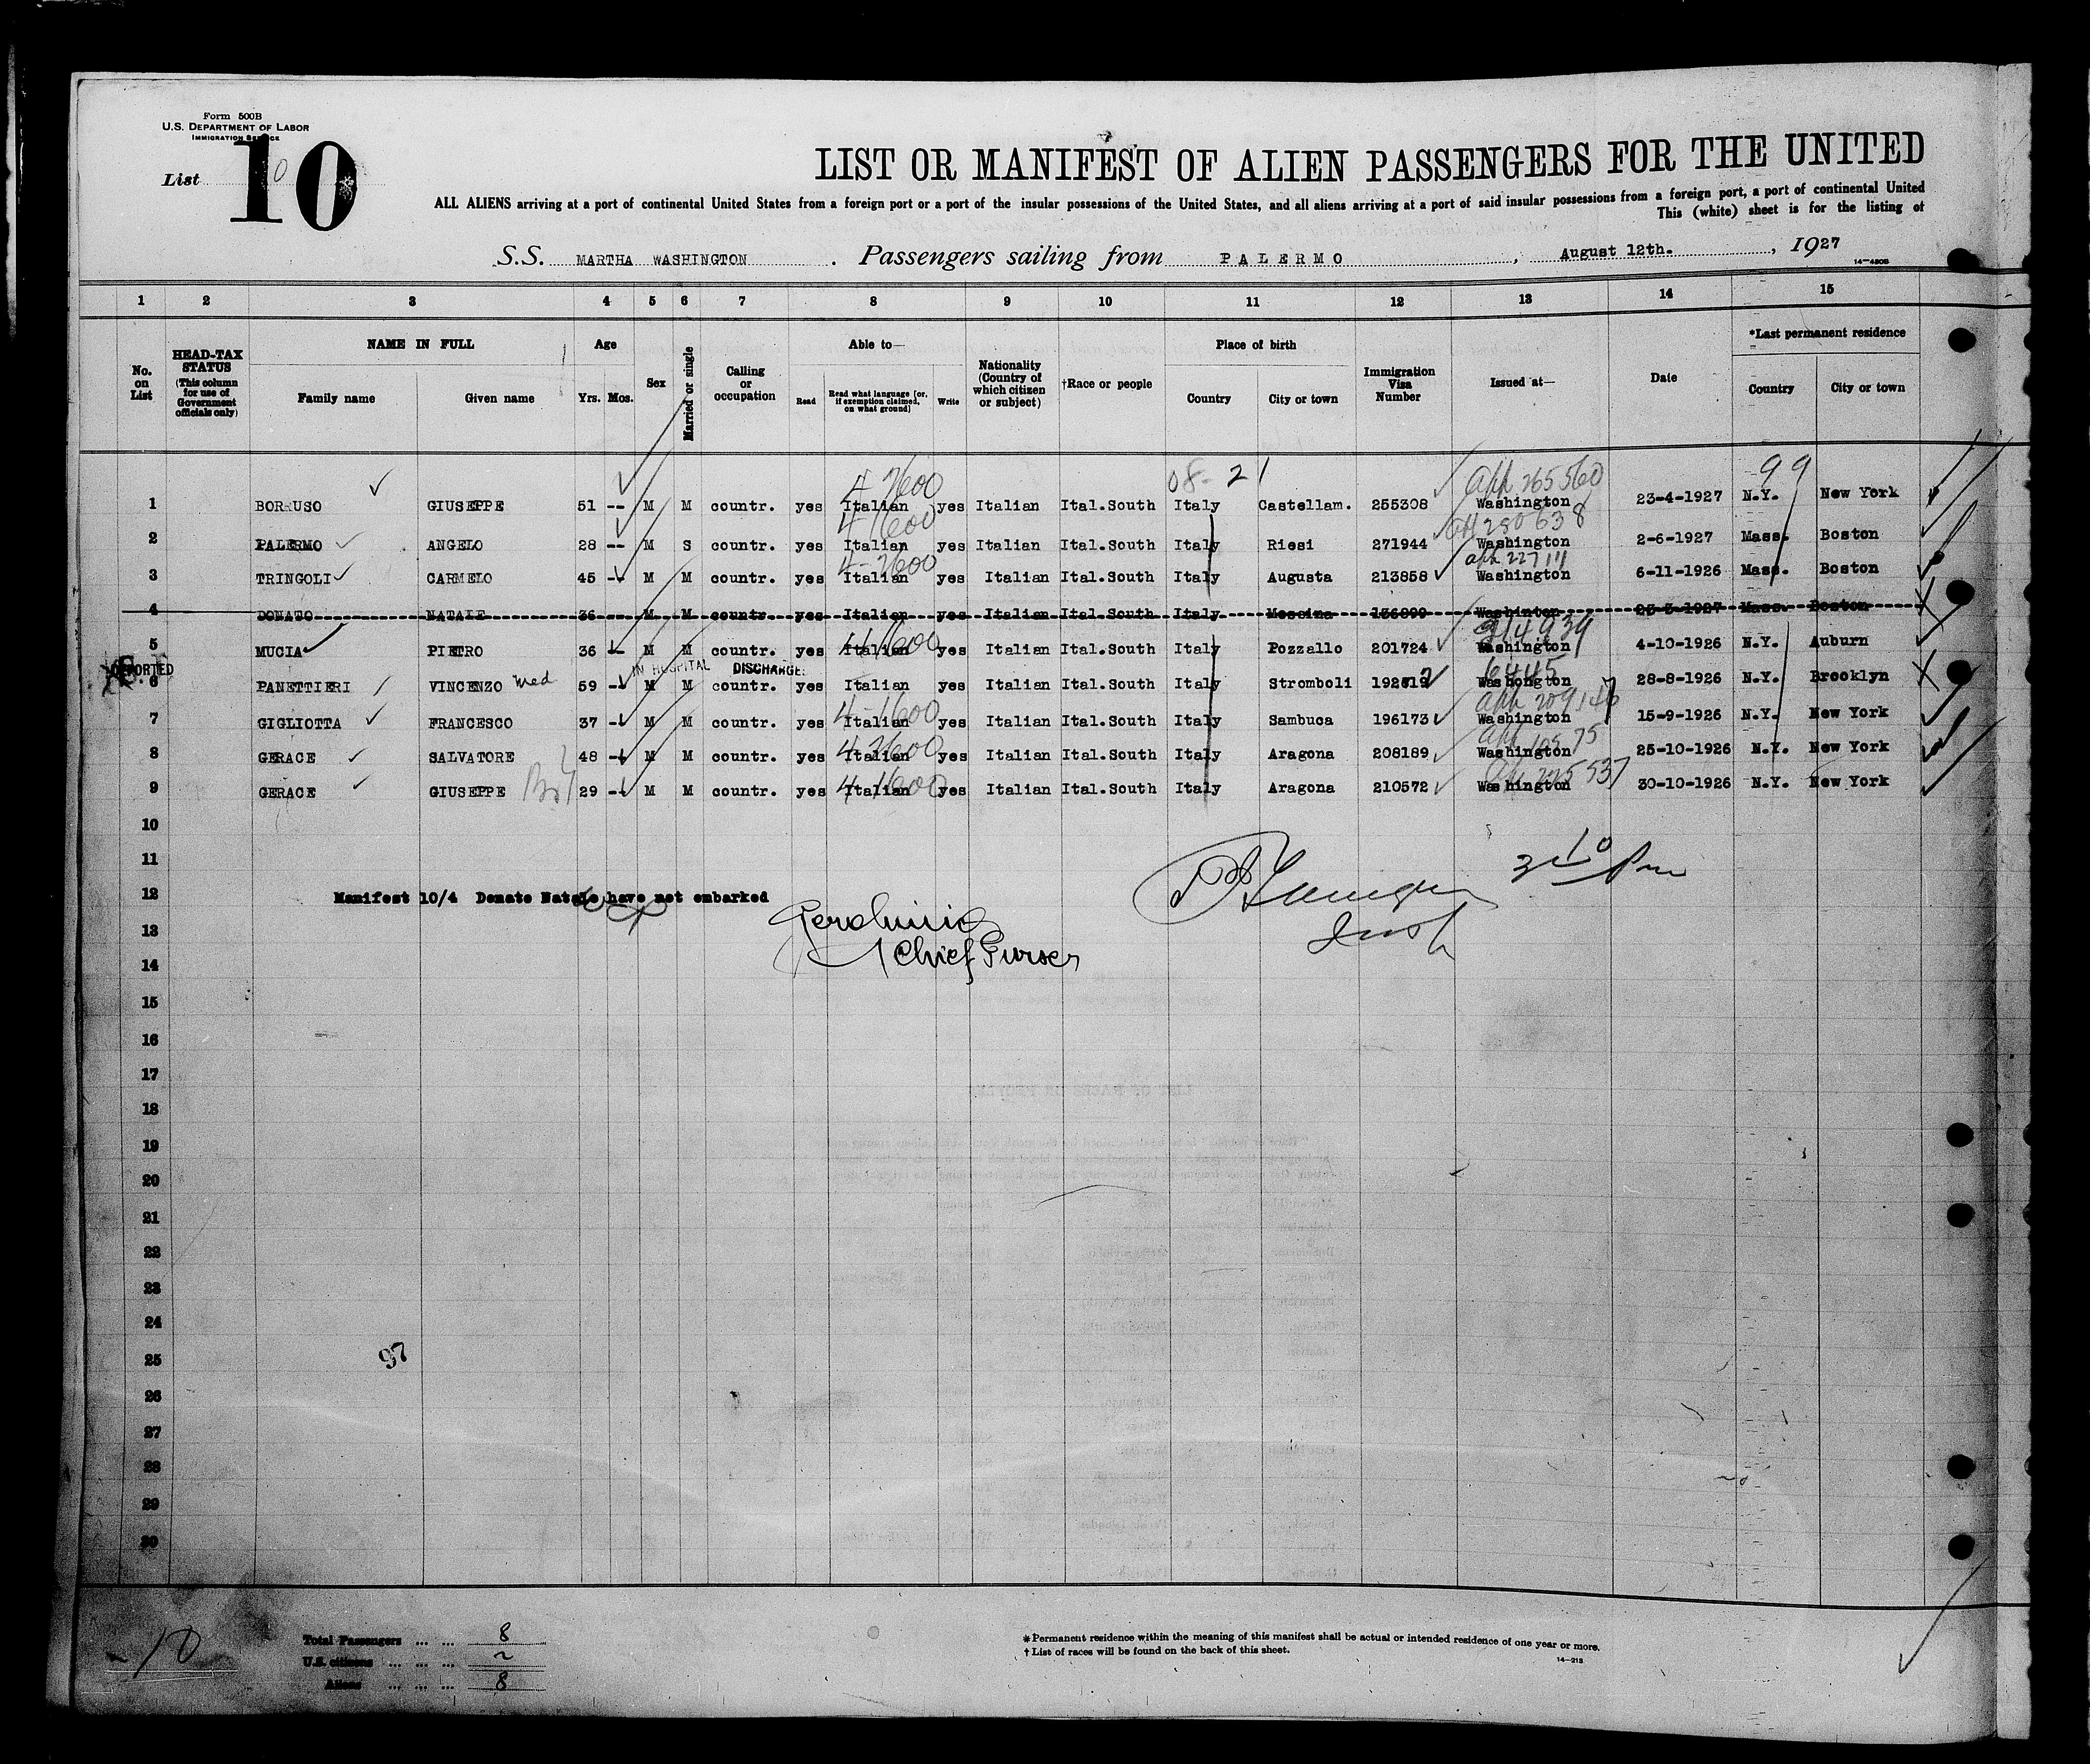 Form 500B
U.S. DEPARTMENT OF LABOR
IMMIGRATION SERVICE
List 10
LIST OR MANIFEST OF ALIEN PASSENGERS FOR THE UNITED
ALL ALIENS arriving at a port of continental United States from a foreign port or a port of the insular possessions of the United States, and all aliens arriving at a port of said insular possessions from a foreign port, a port of continental United
This (white) sheet is for the listing of
S.S. MARTHA WASHINGTON . Passengers sailing from PALERMO , August 12th. , 1927
14-430B
1 2 3 4 5 6 7 8 9 10 11 12 13 14 15
No. on List
HEAD-TAX STATUS (This column for use of Government officials only)
NAME IN FULL
Family name Given name
Age
Yrs. Mos.
Sex
Married or single
Calling or occupation
Able to—
Read
Read what language [or, if exemption claimed, on what ground]
Write
Nationality (Country of which citizen or subject)
†Race or people
Place of birth
Country City or town
Immigration Visa Number
Issued at—
Date
*Last permanent residence
Country City or town
4-2600 08- 21 aph 265560 99
1 BORRUSO GIUSEPPE 51 -- M M countr. yes Italian yes Italian Ital.South Italy Castellam. 255308 Washington 23-4-1927 N.Y. New York
2 PALERMO ANGELO 28 -- M S countr. yes Italian yes Italian Ital.South Italy Riesi 271944 Washington 2-6-1927 Mass. Boston
3 TRINGOLI CARMELO 45 -- M M countr. yes Italian yes Italian Ital.South Italy Augusta 213858 Washington 6-11-1926 Mass. Boston
4 DONATO NATALE 36 -- M M countr. yes Italian yes Italian Ital.South Italy Messina 136899 Washinton 23-3-1927 Mass. Boston
5 MUCIA PIETRO 36 -- M M countr. yes Italian yes Italian Ital.South Italy Pozzallo 201724 Washington 4-10-1926 N.Y. Auburn
IN HOSPITAL DISCHARGE 6445
6 PANETTIERI VINCENZO Med 59 -- M M countr. yes Italian yes Italian Ital.South Italy Stromboli Washongton 28-8-1926 N.Y. Brooklyn
7 GIGLIOTTA FRANCESCO 37 -- M M countr. yes Italian yes Italian Ital.South Italy Sambuca 196173 Washington 15-9-1926 N.Y. New York
8 GERACE SALVATORE 48 -- M M countr. yes Italian yes Italian Ital.South Italy Aragona 208189 Washington 25-10-1926 N.Y. New York
9 GERACE GIUSEPPE 29 -- M M countr. yes Italian yes Italian Ital.South Italy Aragona 210572 Washington 30-10-1926 N.Y. New York
10
11
12 Manifest 10/4 Donate Natale have not embarked
13
Chief Purser
14
15
16
17
18
19
20
21
22
23
24
25 97
26
27
28
29
30
10
Total Passengers ... ... 8
U.S. citizens ... ... ... ~
Aliens ... ... ... 8
*Permanent residence within the meaning of this manifest shall be actual or intended residence of one year or more.
† List of races will be found on the back of this sheet.
14-213